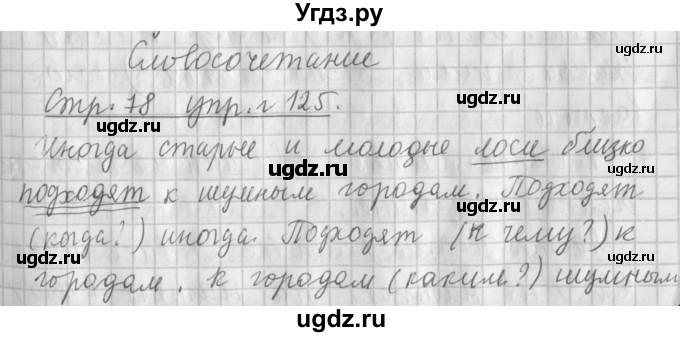 Угдз.ру
Словосочетание
ugdz.ru
Стр. 78 упр. 125.
ugdz.ru ugdz.ru
Иногда старые и молодые лоси близко
ugdz.ru
подходят к шумным городам. Подходят
ugdz.ru
(когда?) иногда. Подходят (к чему?) к
ugdz.ru ugdz.ru
городам. К городам (каким?) шумным
ugdz.ru
ugdz.ru